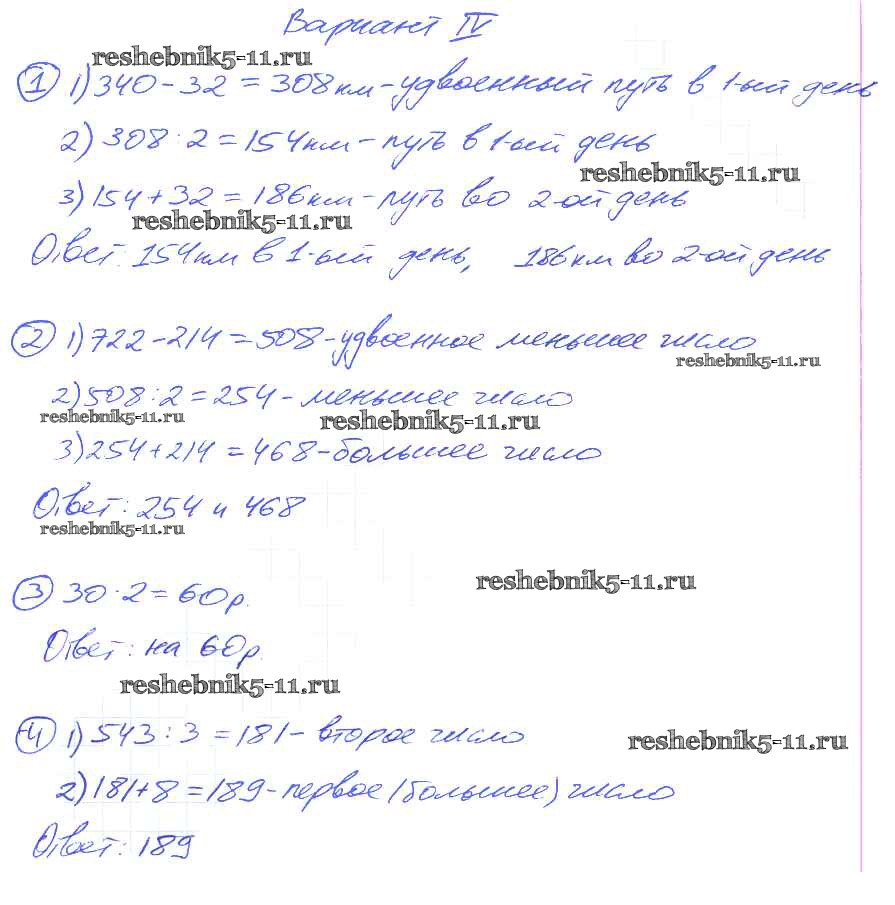 Вариант IV
reshebnik5-11.ru
1 1) 340 - 32 = 308 км - удвоенный путь в 1-ый день
2) 308 : 2 = 154 км - путь в 1-ый день
reshebnik5-11.ru
3) 154 + 32 = 186 км - путь во 2-ой день
reshebnik5-11.ru
Ответ: 154 км в 1-ый день, 186 км во 2-ой день
2 1) 722 - 214 = 508 - удвоенное меньшее число
reshebnik5-11.ru
2) 508 : 2 = 254 - меньшее число
reshebnik5-11.ru reshebnik5-11.ru
3) 254 + 214 = 468 - большее число
Ответ: 254 и 468
reshebnik5-11.ru
reshebnik5-11.ru
3 30 · 2 = 60 р.
Ответ: на 60 р.
reshebnik5-11.ru
4 1) 543 : 3 = 181 - второе число
reshebnik5-11.ru
2) 181 + 8 = 189 - первое (большее) число
Ответ: 189